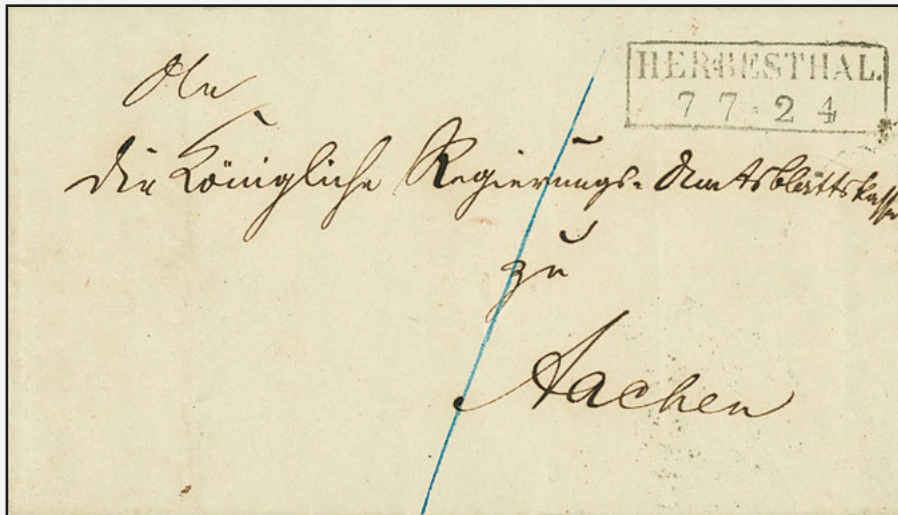 HERBESTHAL.
7 7 - 2 4
An
die Königliche Regierungs-Amtsblattskasse
zu
Aachen